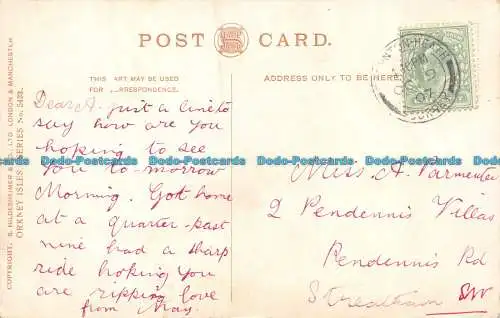 POST CARD.
THIS PART MAY BE USED
FOR CORRESPONDENCE.
ADDRESS ONLY TO BE HERE
Dear A. just a line to
say how are you
hoping to see
you to-morrow
Morning. Got home
at a quarter-past
nine had a sharp
ride hoping you
are ripping love
from May.
Miss A. Parmenter
2 Pendennis Villas
Pendennis Rd
Streatham SW
COPYRIGHT. S. HILDESHEIMER & CO., LTD. LONDON & MANCHESTER
ORKNEY ISLES. SERIES No. 5433.
07
Dodo-Postcards Dodo-Postcards Dodo-Postcards Dodo-Postcards